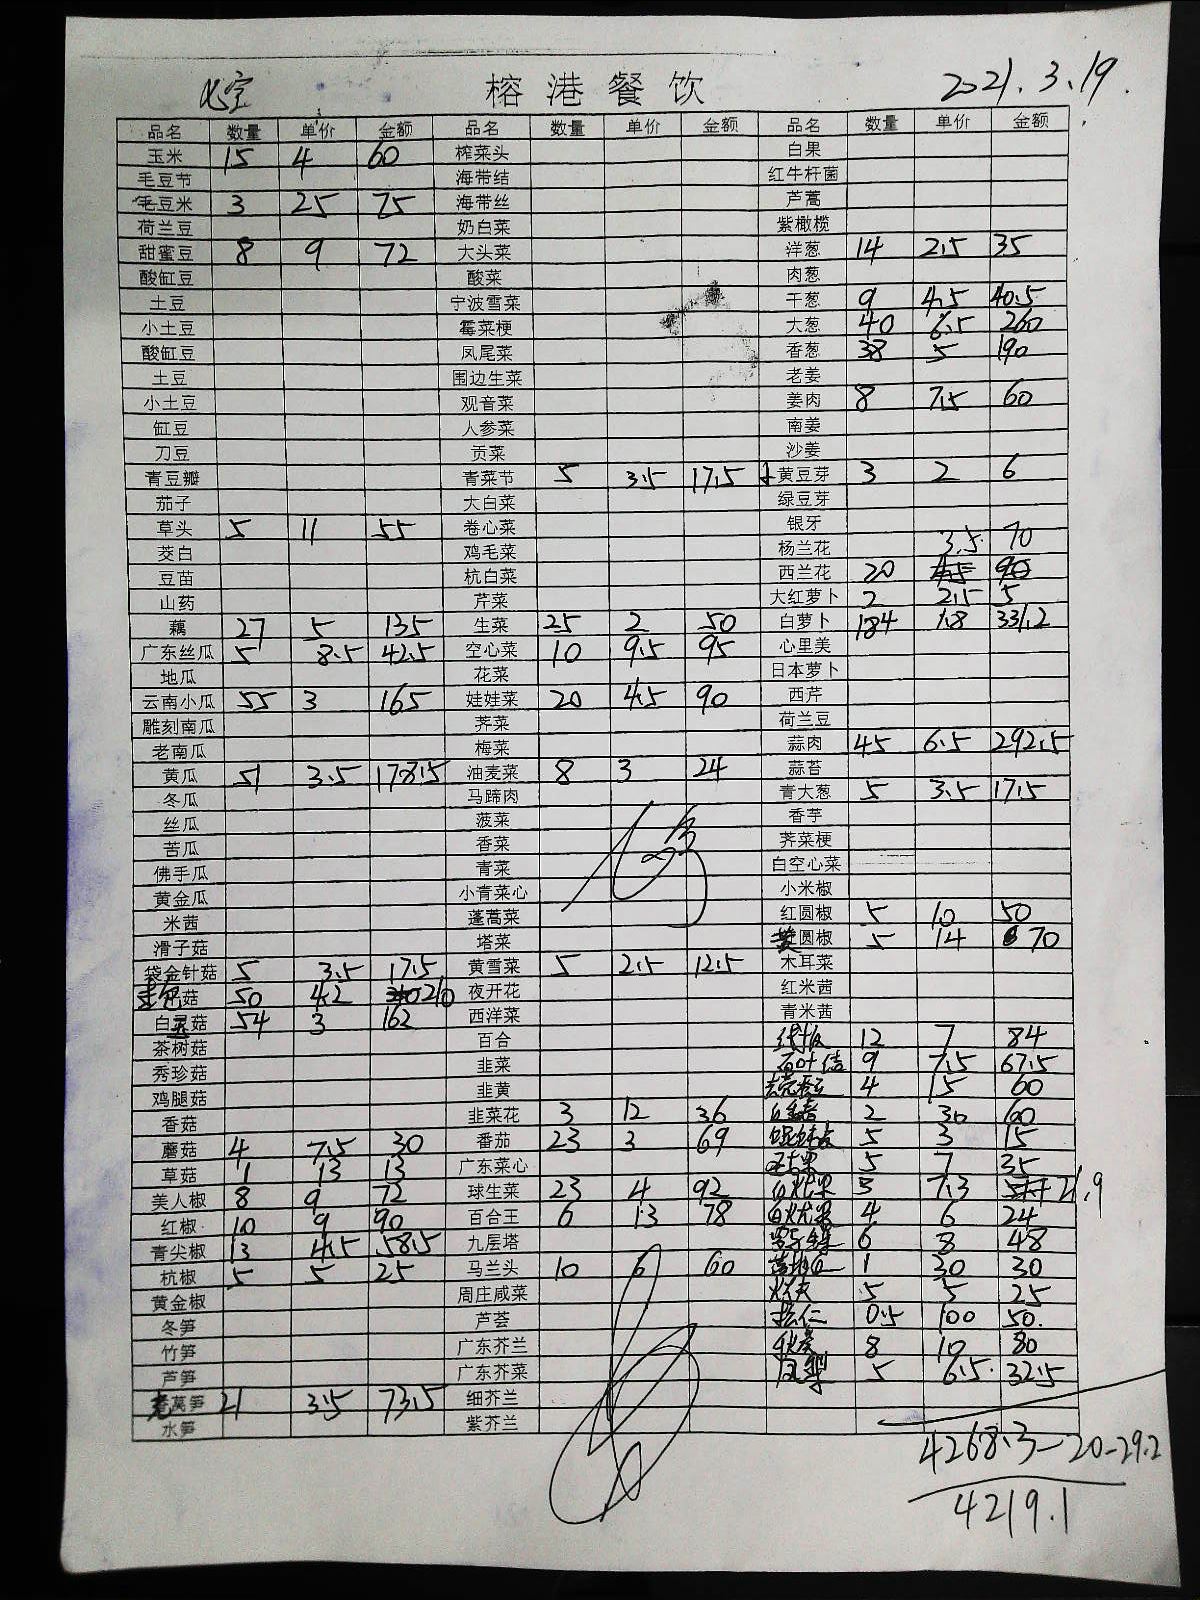 榕港餐饮 2021.3.19.
品名 数量 单价 金额 品名 数量 单价 金额 品名 数量 单价 金额
玉米 15 4 60 榨菜头 白果
毛豆节 海带结 红牛杆菌
毛豆米 3 25 75 海带丝 芦蒿
荷兰豆 奶白菜 紫橄榄
甜蜜豆 8 9 72 大头菜 洋葱 14 2.5 35
酸缸豆 酸菜 肉葱
土豆 宁波雪菜 干葱 9 4.5 40.5
小土豆 霉菜梗 大葱 40 6.5 260
酸缸豆 凤尾菜 香葱 38 5 190
土豆 围边生菜 老姜
小土豆 观音菜 姜肉 8 7.5 60
缸豆 人参菜 南姜
刀豆 贡菜 沙姜
青豆瓣 青菜节 5 3.5 17.5 黄豆芽 3 2 6
茄子 大白菜 绿豆芽
草头 5 11 55 卷心菜 银牙
茭白 鸡毛菜 杨兰花 3.5 70
豆苗 杭白菜 西兰花 20 4.5 90
山药 芹菜 大红萝卜 2 2.5 5
藕 27 5 135 生菜 25 2 50 白萝卜 184 1.8 331.2
广东丝瓜 5 8.5 42.5 空心菜 10 9.5 95 心里美
地瓜 花菜 日本萝卜
云南小瓜 55 3 165 娃娃菜 20 4.5 90 西芹
雕刻南瓜 荠菜 荷兰豆
老南瓜 梅菜 蒜肉 45 6.5 292.5
黄瓜 51 3.5 178.5 油麦菜 8 3 24 蒜苔
冬瓜 马蹄肉 青大葱 5 3.5 17.5
丝瓜 菠菜 香芋
苦瓜 香菜 荠菜梗
佛手瓜 青菜 白空心菜
黄金瓜 小青菜心 小米椒
米茜 蓬蒿菜 红圆椒 5 10 50
滑子菇 塔菜 黄圆椒 5 14 70
袋金针菇 5 3.5 17.5 黄雪菜 5 2.5 12.5 木耳菜
菇 50 4.2 210 夜开花 红米茜
白灵菇 54 3 162 西洋菜 青米茜
茶树菇 百合 12 7 84
秀珍菇 韭菜 百叶结 9 7.5 67.5
鸡腿菇 韭黄 4 15 60
香菇 韭菜花 3 12 36 2 30 60
蘑菇 4 7.5 30 番茄 23 3 69 5 3 15
草菇 1 13 13 广东菜心 5 7 35
美人椒 8 9 72 球生菜 23 4 92 3 7.3 21.9
红椒 10 9 90 百合王 6 13 78 4 6 24
青尖椒 13 4.5 58.5 九层塔 6 8 48
杭椒 5 5 25 马兰头 10 6 60 1 30 30
黄金椒 周庄咸菜 5 5 25
冬笋 芦荟 松仁 0.5 100 50.
竹笋 广东芥兰 8 10 80
芦笋 广东芥菜 凤梨 5 6.5 32.5
莴笋 21 3.5 73.5 细芥兰
水笋 紫芥兰
4268.3-20-29.2
4219.1